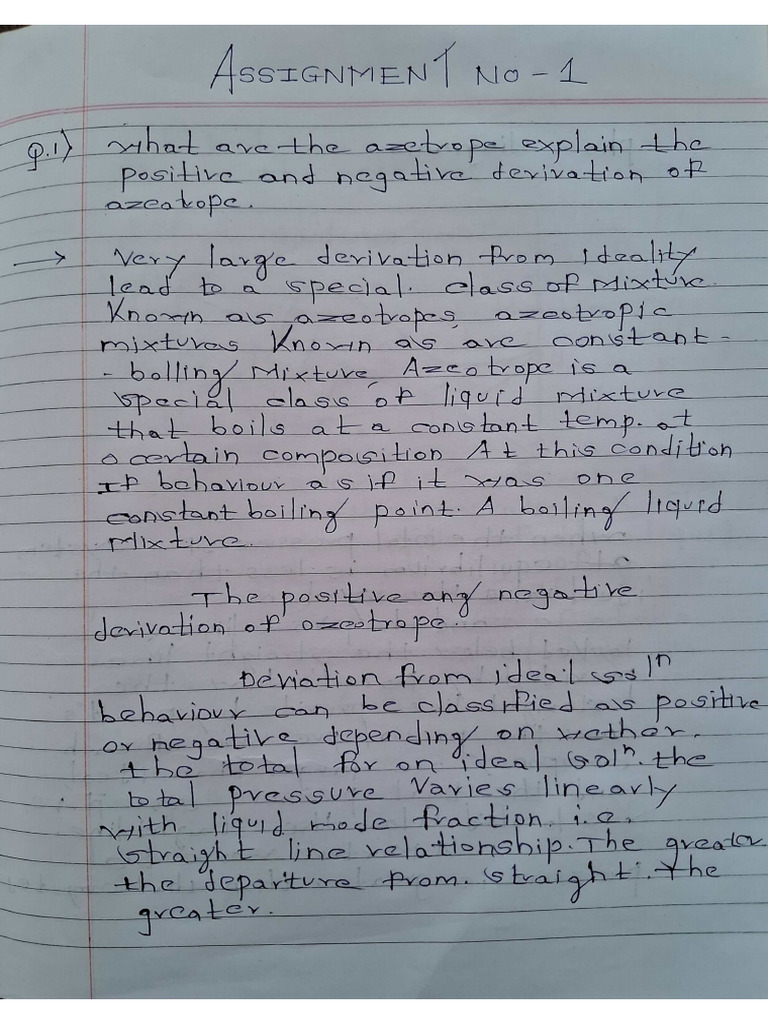 ASSIGNMENT NO - 1
Q.1) What are the azetrope explain the
positive and negative derivation of
azeatope.
→ Very large derivation from ideality
lead to a special. class of Mixture.
Known as azeotropes, azeotropic
mixtures Known as are constant -
- bolling Mixture, Azeotrope is a
special class of liquid Mixture
that boils at a constant temp. at
a certain composition At this condition
If behaviour as if it was one
constant boiling point. A boiling liquid
Mixture.
The positive and negative
derivation of ozeotrope.
Deviation from ideal solⁿ
behaviour can be classified as positive
or negative depending on wether.
the total for on ideal solⁿ. the
total pressure varies linearly
with liquid mode fraction. i.e.
straight line relationship. The greater
the departure from. straight. The
greater.